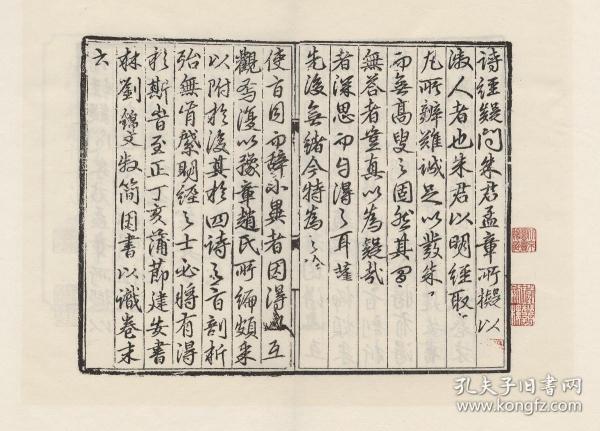 詩經疑問朱君孟章所擬以
淑人者也朱君以明經取
凡所辨難誠足以發朱
而無高叟之固然其間
無答者豈真以為疑哉
者深思而自得之耳
先後無緒今特為之
使言因而辭小異者因得互
觀焉復以豫章趙氏所編頗采
以附於後其於四詩之旨剖析
殆無當明經之士必將有得
於斯昔至正丁亥蒲節建安書
林劉錦文叔簡因書以識卷末
云
孔夫子旧书网
www.kongfz.com